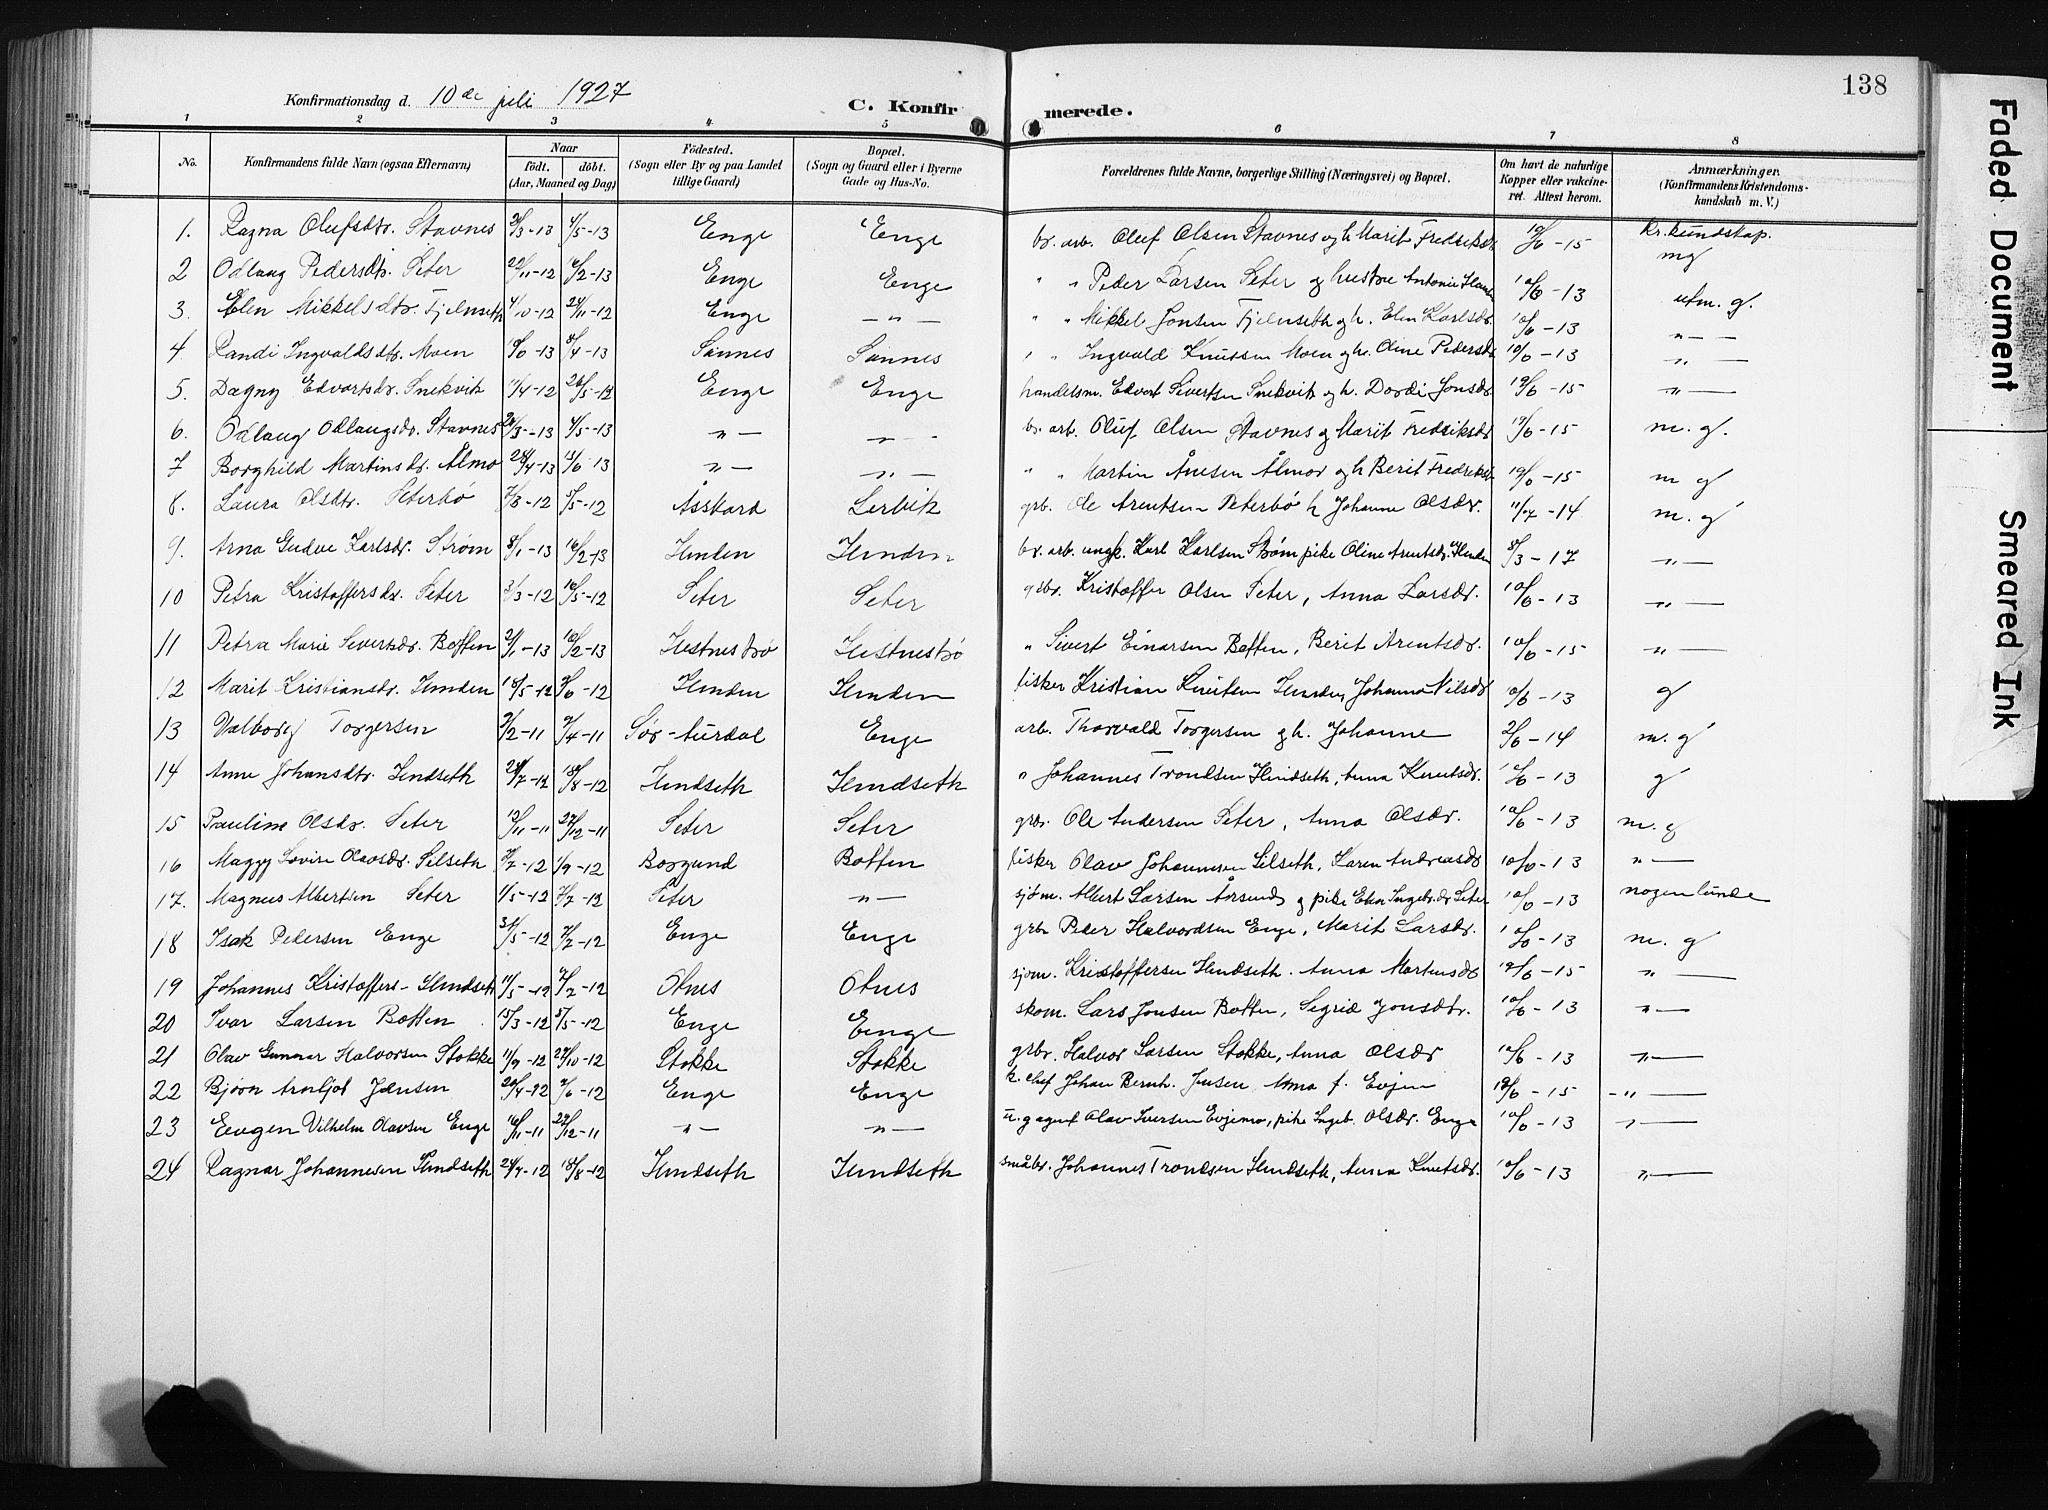 138
Konfirmationsdag d. 10de juli 1927
C. Konfirmerede.
1 2 3 4 5 6 7 8
No. Konfirmandens fulde Navn (ogsaa Efternavn) Naar födt. döbt. (Aar, Maaned og Dag) Födested. (Sogn eller By og paa Landet tillige Gaard) Bopæl. (Sogn og Gaard eller i Byerne Gade og Hus-No. Forældrenes fulde Navne, borgerlige Stilling (Næringsvei) og Bopæl. Om havt de naturlige Kopper eller vakcineret. Attest herom. Anmærkninger. (Konfirmandens Kristendomskundskab m. V.)
1. Ragna Olufsdtr. Stavnes 4/5-13 Enge Enge br. arb. Oluf Olsen Stavnes og h Marit 19/6-15 Kr. kundskap. mg
2 Odlaug Pedersdtr. Seter 22/11-12 Enge Enge " " Peder Larsen Seter og hustru Antonie 10/6-13 utm. g.
3. Elen Mikkelsdtr. Fjelnseth 4/10-12 24/11-12 Enge -"- " " Mikkel Jonsen Fjelnseth og h. Elen Karlsdr. 10/6-13 "-
4 Randi Ingvaldsdtr. Moen Sannes Sannes " " Ingvald Knutsen Moen og h. Oline Pedersdr 10/6-13 "-
5. Dagny Edvartsdr. Snekvik 11/4-12 26/5-12 Enge Enge handelsm. Edvart Sivertsen Snekvik og h. Dordi Jonsdr. 19/6-15 -"-
6. Odlaug Odlaugsdr. Stavnes 4/5-13 "- "- br. arb. Oluf Olsen Stavnes og Marit Fredriksdr 19/6-15 m. g.
7 Borghild Martinsdr. Ålmo 28/4-13 15/6-13 "- "- " " Martin Ånesen Ålmo og h Berit 19/6-15 m g
8. Laura Olsdtr. Seterbø Åsskard Lervik grb. Ole Arentsen Seterbø h Johanne Olsdr. 11/7-14 m. g
9. Arna Gudve Karlsdr. Strøm 8/1-13 16/2-13 Henden Henden br. arb. ungk. Karl Karlsen Strøm pike Oline Arentsdr. Henden 8/3-17 "-
10 Petra Kristoffersdr. Seter 16/5-12 Seter Seter gbr. Kristoffer Olsen Seter, Anna Larsdr. 10/6-13 "-
11 Petra Marie Sivertsdr. Botten 2/1-13 Hestnesbø Hestnesbø " Sivert Einarsen Botten, Berit Arentsdr. 10/6-15 "-
12 Marit Kristiansdr. Henden 18/5-12 Henden Henden fisker Kristian Knutsen Henden, Johanna Nilsdr 10/6-13 g
13 Valborg Torgersen Sør-Aurdal Enge arb. Thorvald Torgersen og h. Johanne 2/6-14 m. g
14 Anne Johansdtr. Hendseth 24/7-12 18/8-12 Hendseth Hendseth " Johannes Trondsen Hendseth, Anna Knutsdr. 10/6-13 g
15 Pauline Olsdr. Seter 27/12-11 Seter Seter grbr. Ole Andersen Seter, Anna Olsdr. 10/6-13 m. g
16 Maggy Lovise Olavsdr. Silseth 1/9-12 Borgund Botten fisker Olav Johannesen Silseth, Karen Andreasdr 10/6-13 "-
17. Magnus Albertsen Seter 1/5-12 7/7-12 Seter "- sjøm. Albert Larsen Årsund og pike Elen Ingebr.dr Seter 10/6-13 nogenlunde
18 Isak Pedersen Enge 31/5-12 7/7-12 Enge Enge grbr Peder Halvordsen Enge, Marit Larsdr. 10/6-13 m. g
19 Johannes Kristoffers- Hendseth 11/5-12 7/7-12 Otnes Otnes sjøm. Kristoffersen Hendseth. Anna Martinsdr 19/6-15 "-
20 Ivar Larsen Botten 15/3-12 5/5-12 Enge Enge skom. Lars Jonsen Botten, Sigrid Jonsdtr. 10/6-13 "-
21 Olav Gunnar Halvorsen Stokke 11/9-12 27/10-12 Stokke Stokke grbr. Halvor Larsen Stokke, Anna Olsdr 10/6-13 "-
22 Bjørn Arnljot Jensen 20/4-12 Enge Enge k. chef Johan Bernh. Jensen Anna f. Evjen 19/6-15 -"-
23 Eugen Vilhelm Olavsen Enge 16/11-11 27/12-11 "- "- Olav Iversen Evjemo, pike Ingeb. Olsdr. Enge 10/6-13 "-
24 Ragnar Johannesen Hendseth 24/7-12 18/8-12 Hendseth Hendseth småbr. Johannes Trondsen Hendseth, Anna Knutsdr. 10/6-13 "-
Faded Document
Smeared Ink